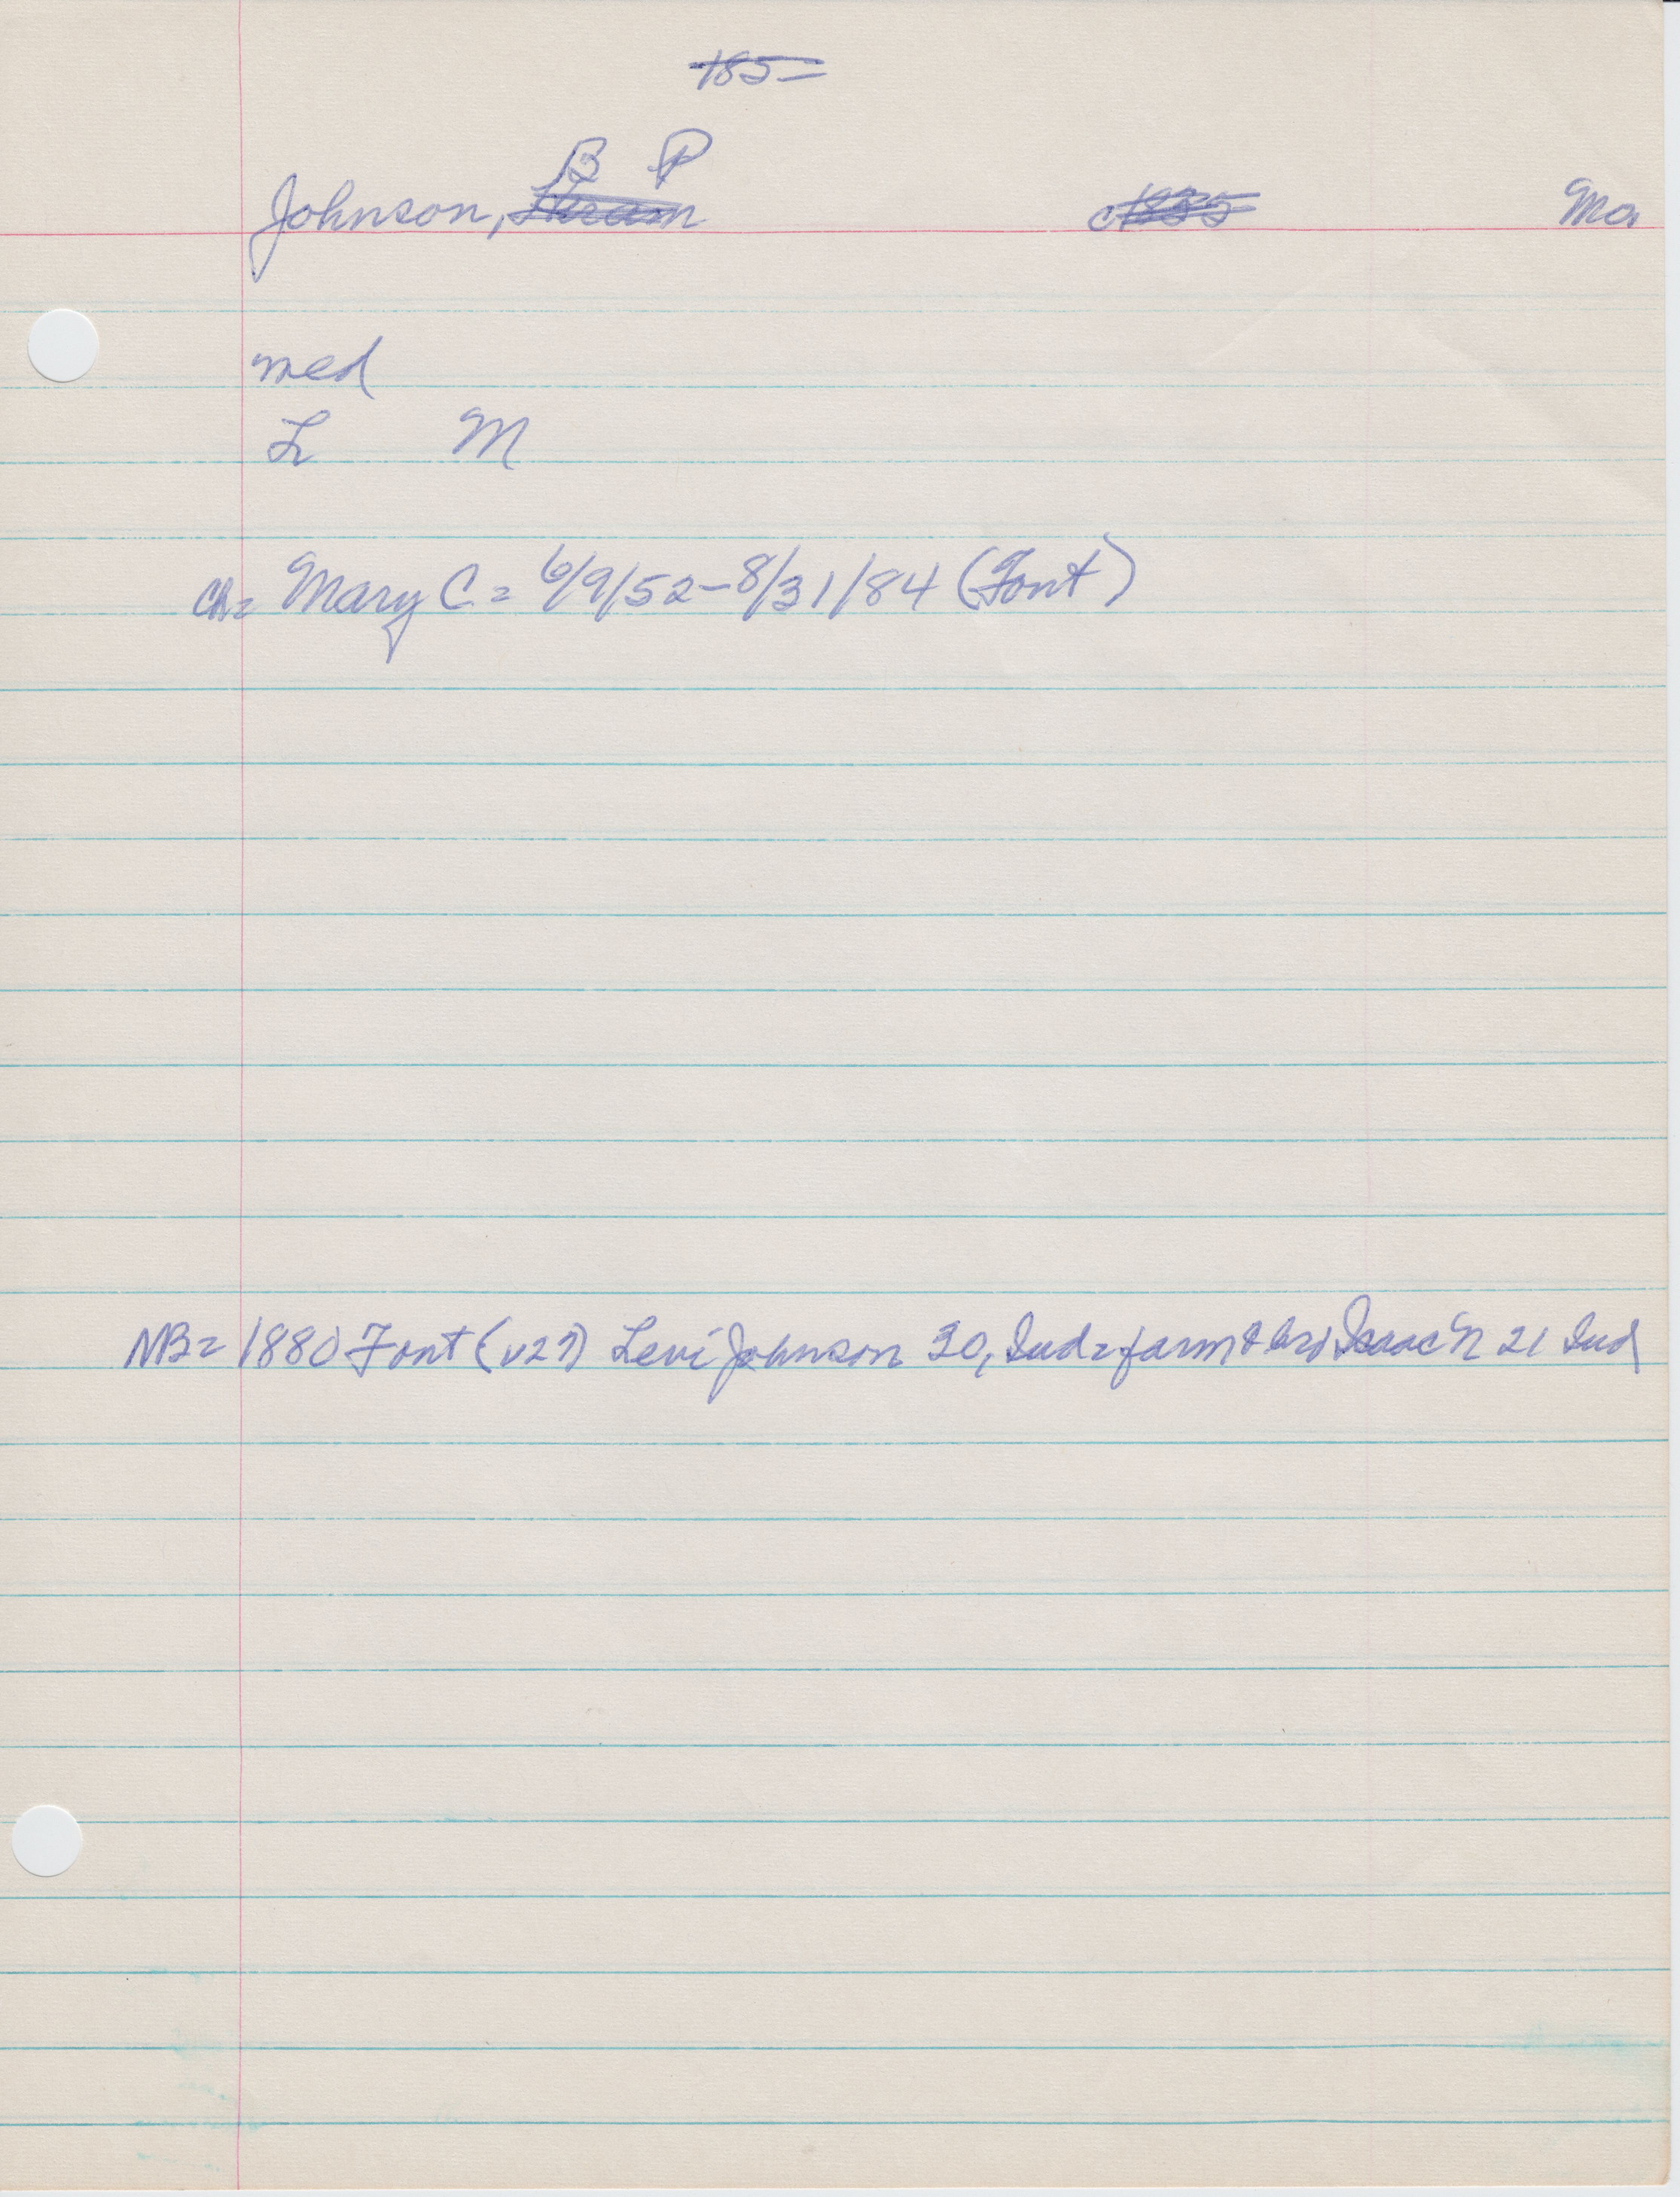 185-
B P
Johnson, Hiram c1855 Mo
med
L M
Ch= Mary C = 6/9/52-8/31/84 (Font)
NB= 1880 Font (v27) Levi Johnson 30, Ind = farm & bro Isaac N 21 Ind